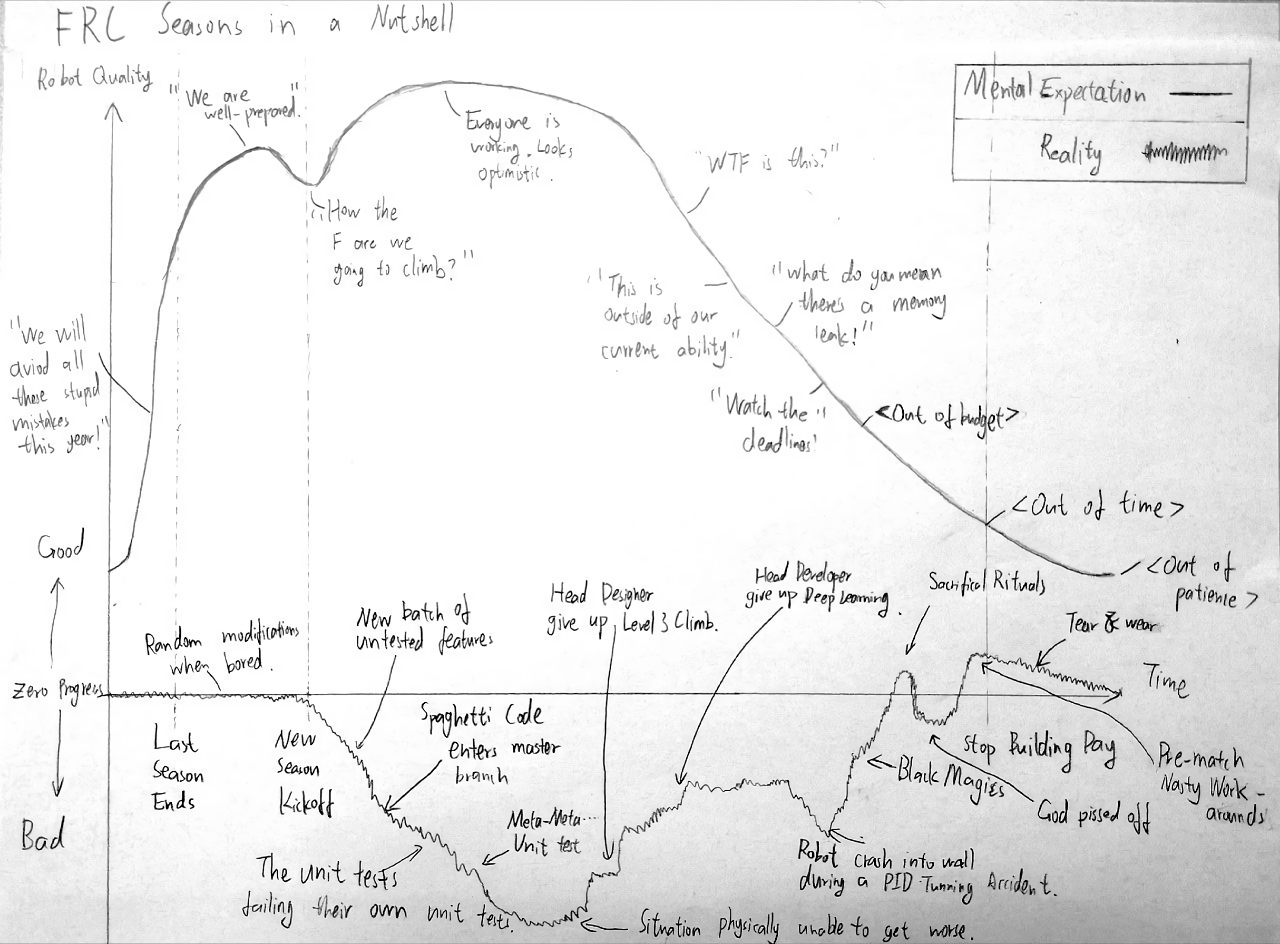 FRC Seasons in a Nutshell
Robot Quality
Mental Expectation
Reality
"We are
well-prepared."
Everyone is
working. Looks
optimistic.
"WTF is this?"
"How the
F are we
going to climb?"
"This is
outside of our
current ability."
"What do you mean
there's a memory
leak!"
"We will
aviod all
these stupid
mistakes
this year!"
"Watch the
deadlines!"
<Out of budget>
<Out of time>
<Out of
patience>
Good
Zero Progress
Bad
Time
Random modifications
when bored.
New batch of
untested features
Head Designer
give up Level 3 Climb.
Head Developer
give up Deep Learning.
Sacrifical Rituals
Tear & wear
Last
Season
Ends
New
Season
Kickoff
Spaghetti Code
enters master
branch
Meta-Meta-...
Unit test
The unit tests
failing their own unit tests.
Situation physically unable to get worse.
Robot crash into wall
during a PID Tunning Accident.
Black Magics
Stop Building Day
God pissed off
Pre-match
Nasty Work-
arounds